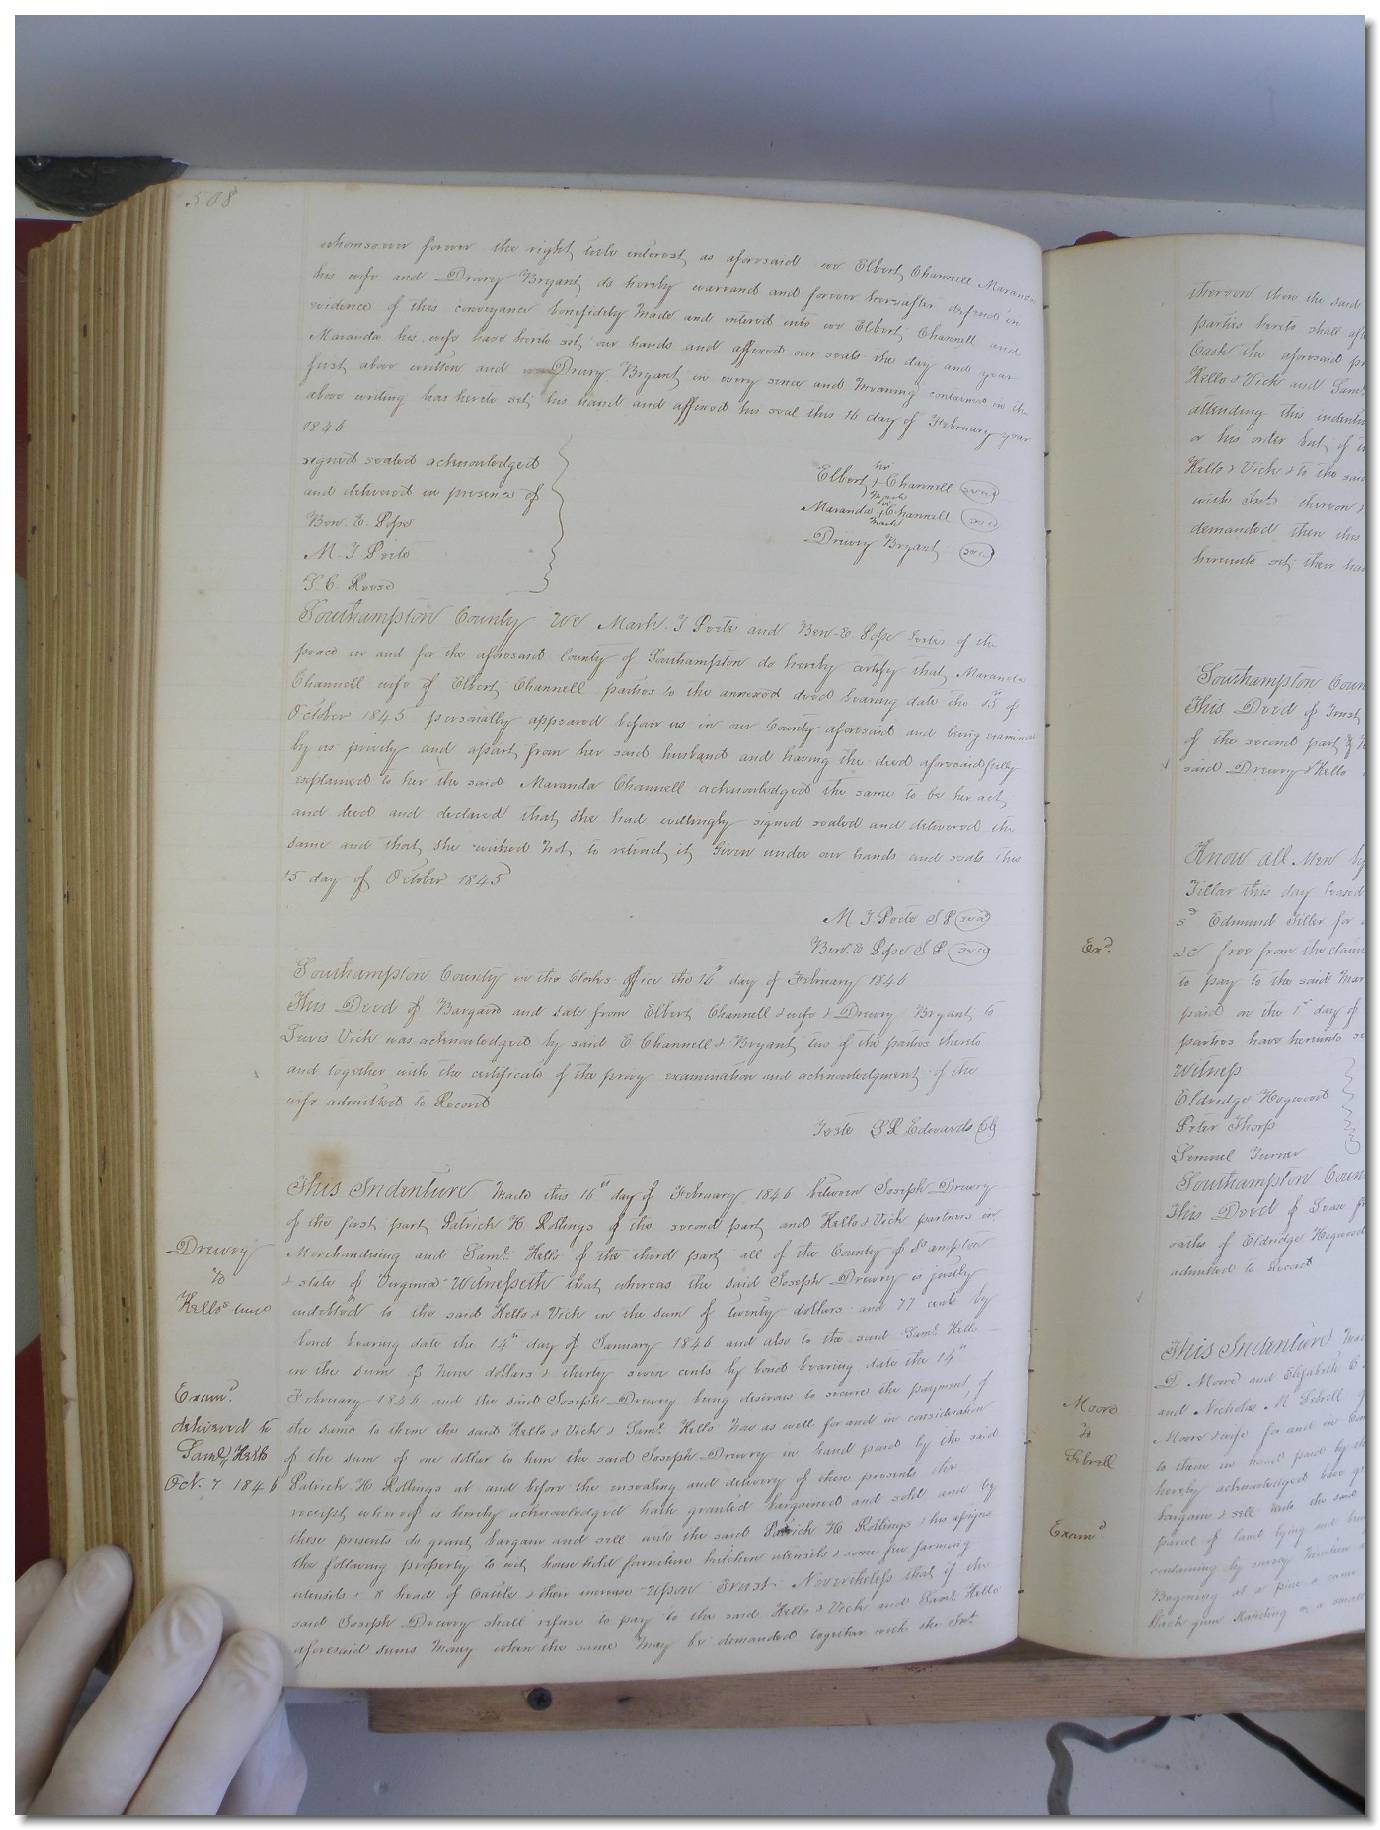 508
whomsoever forever the right title interest as aforesaid we Elbert Channell Maranda
his wife and Drewry Bryant do hereby warrand and forever hereafter defend in
evidence of this conveyance bonifidely made and intered into we Elbert Channell and
Maranda his wife have hereto set our hands and affixed our seals the day and year
first above written and Drewry Bryant in every sence and meaning contained in the
above writing has hereto set his hand and affixed his seal this 16 day of February year
1846
signed sealed acknowledged
and delivered in presence of
Ben. E. Pope
M. J. Poete
Elbert his mark Channell seal
Maranda her mark Channell seal
Drewry Bryant seal
Southampton County We Mark. J Poete and Ben. E. Pope of the
peace in and for the aforesaid County of Southampton do hereby certify that Maranda
Channell wife of Elbert Channell parties to the annexed deed bearing date the 15 of
October 1845 personally appeared before us in our County aforesaid and being examined
by us privily and apart from her said husband and having the deed aforesaid fully
explained to her the said Maranda Channell acknowledged the same to be her act
and deed and declared that she had willingly signed sealed and delivered the
same and that she wished not to retract it Given under our hands and seals this
15 day of October 1845
M J Poete J P seal
Ben. E Pope J P seal
Southampton County in the Clerks office the 16th day of February 1846
This Deed of Bargain and Sale from Elbert Channell & wife & Drewry Bryant to
Lewis Vick was acknowledged by said E Channell & Bryant two of the parties thereto
and together with the certificate of the privy examination and acknowledgment of the
wife admitted to Record
Teste L R Edwards Clk
This Indenture made this 16th day of February 1846 between Joseph Drewry
of the first part Patrick H. Rollings of the second part and Kello & Vick partners in
Merchandising and Saml. Kello of the third part all of the County of So ampton
& state of Virginia Witnesseth that whereas the said Joseph Drewry is justly
indebted to the said Kello & Vick in the sum of twenty dollars and 77 cents by
bond bearing date the 14th day of January 1846 and also to the said Saml. Kello
in the sum of nine dollars & thirty seven cents by bond bearing date the 14th
February 1846 and the said Joseph Drewry being desirous to secure the payment of
the same to them the said Kello & Vick & Saml. Kello Now as well for and in consideration
of the sum of one dollar to him the said Joseph Drewry in hand paid by the said
Patrick H Rollings at and before the ensealing and delivery of these presents the
receipt whereof is hereby acknowledged hath granted bargained and sold and by
these presents do grant bargain and sell unto the said Patrick H Rollings & his assigns
the following property to wit house hold furniture kitchen utensils & some few farming
utensils & 8 head of Cattle & their increase Upon Trust Nevertheless that if the
said Joseph Drewry shall refuse to pay to the said Kello & Vick and Saml. Kello
aforesaid sums money when the same may be demanded together with the Int.
Drewry
to
Kello
Exam.d
delivered to
Saml. Kello
Oct. 7 1846
thereon then the said
parties hereto shall
Cash the aforesaid
Kello & Vick and Saml.
attending this indenture
or his order but if
Kello & Vick & to the said
with Int. thereon
demanded then this
hereunto set their
Southampton
This Deed of Trust
of the second part
said Drewry & Kello
Ex.d
Know all Men by
this day
sd Edmund for
free from the claim
to pay to the said
paid on the 1st day of
parties have hereunto
Witness
Eldridge Hogwood
Peter Thorp
Samuel Turner
Southampton
This Deed of Lease
oaths of Eldridge Hogwood
admitted to Record
Moore
to
Exam.d
This Indenture
D Moore and Elizabeth
and Nicholas M
Moore & wife for and in
to them in hand paid by the
hereby acknowledged have
bargain & sell unto the said
parcel of land lying and
containing by survey
Beginning at a pine a
black gum standing in a small